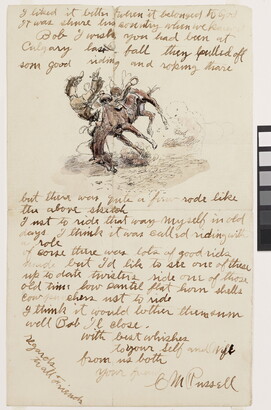 I liked it better when it belonged to God
it was shure his country when we
Bob I wish you had been at
Calgary last fall they pulled off
som good riding and roping thair
but there was quite a fiew rode like
the above sketch
I ust to ride that way myself in old
days I think it was called riding with
a role
of corse there was lots of good rids
but Id like to see one of these
up to date twisters ride one of those
old time low cantel flat horn shells
cow punchers ust to ride
I think it would bother them som
well Bob Il close.
with best whishes
to your self and wife
from us both
your friend
C M Russell
Regards
to all friends